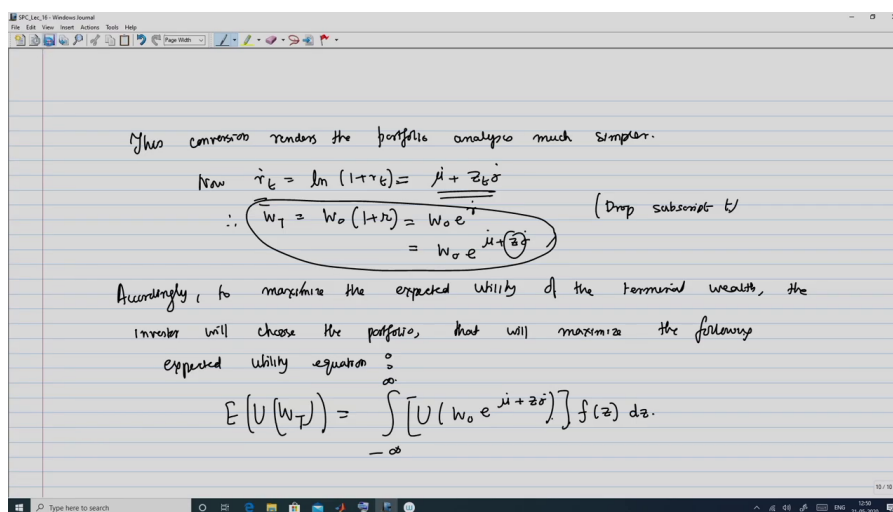 SPC_Lec_16 - Windows Journal
File Edit View Insert Actions Tools Help
Page Width
This conversion renders the portfolio analysis much simpler.
Now ṙ_t = ln (1+r_t) = μ̇ + z_t σ̇
∴ W_T = W_0 (1+r) = W_0 e^ṙ (Drop subscript t)
= W_0 e^{μ̇ + zσ̇}
Accordingly, to maximize the expected utility of the terminal wealth, the
investor will choose the portfolio, that will maximize the following
expected utility equation :
E(U(W_T)) = ∫_{-∞}^{∞} [U(W_0 e^{μ̇ + zσ̇})] f(z) dz.
10 / 10
Type here to search
ENG
12:50
21-05-2020